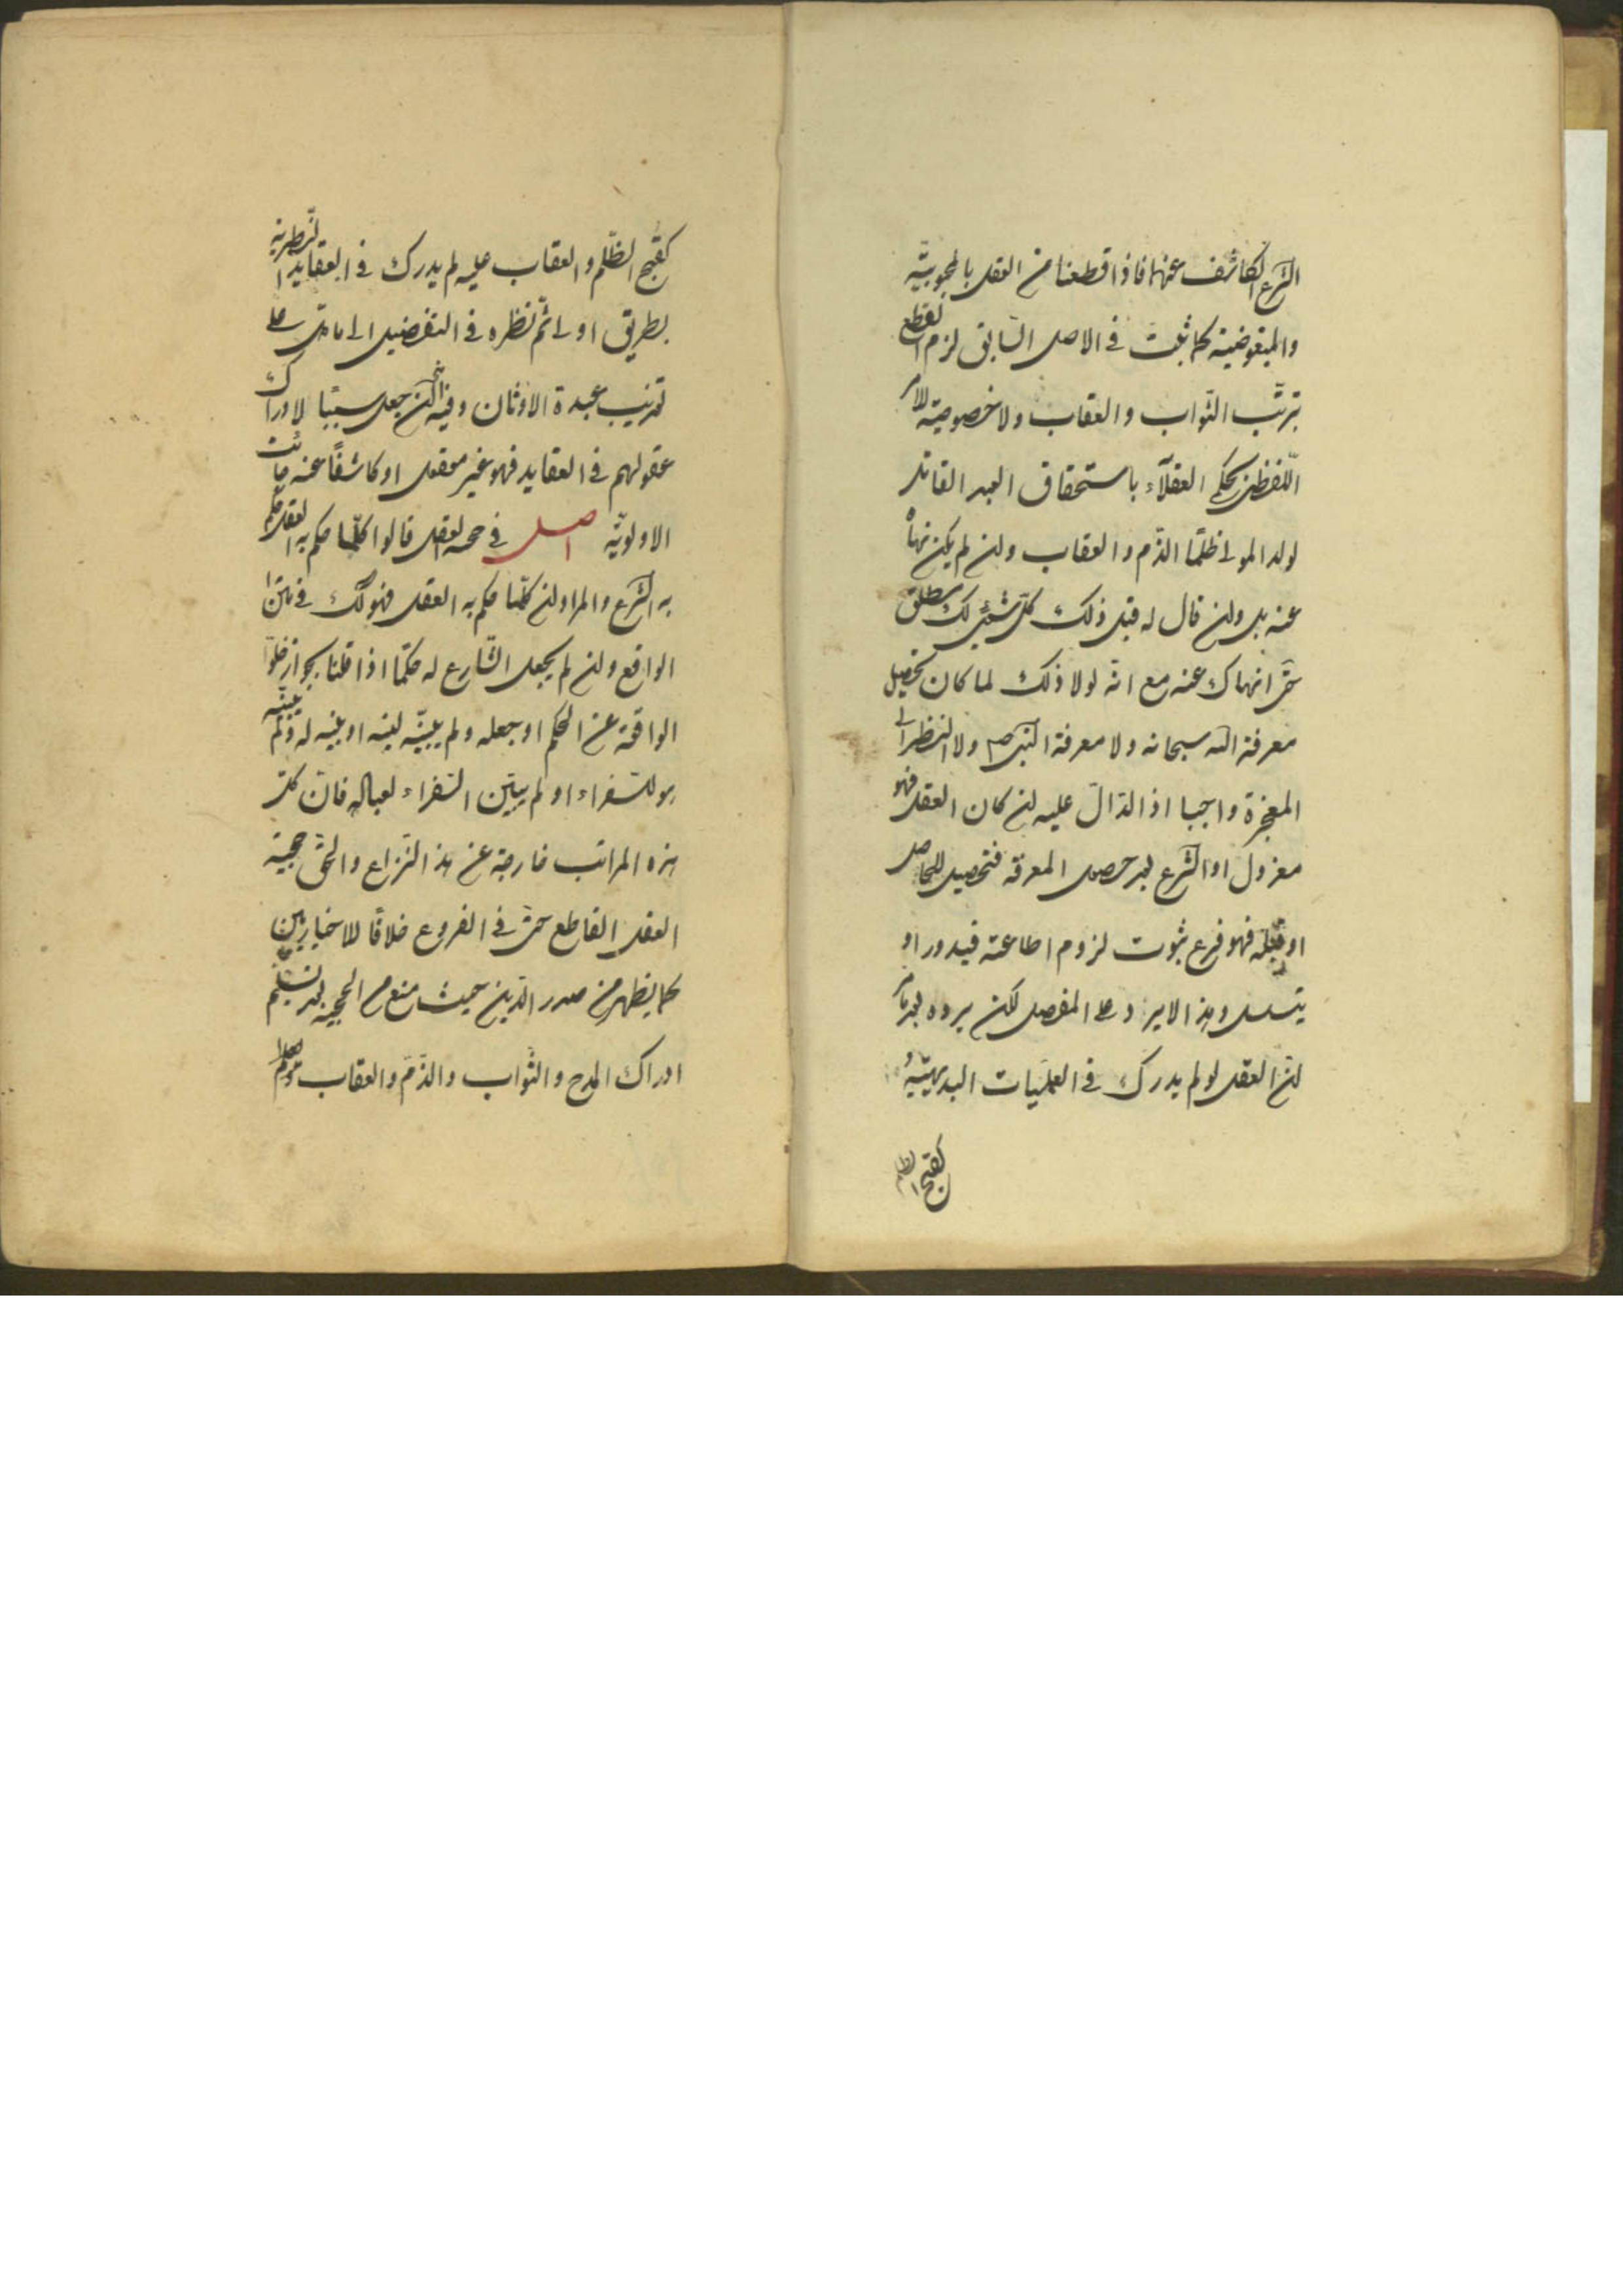 الشرع الكاشف عنها فاذا قطعنا من العقل بالمحبوبيّة
والمبغوضيّة كما ثبت في الاصل السّابق لزم القطع
بترتّب الثّواب والعقاب ولا خصوصيّة للامر
اللّفظيّ بحكم العقلآء باستحقاق العبد القاتل
لولد المولى ظلمًا الذّم والعقاب وان لم يكن نهاه
عنه بل وان قال له قبل ذلك كلّ شئ لك مطلق
حتى انهاك عنه مع انّه لولا ذلك لما كان تحصيل
معرفة الله سبحانه ولا معرفة النّبي ص ولا النظر الى
المعجزة واجبا اذ الدّال عليه ان كان العقل فهو
معزول او الشّرع بعد حصول المعرفة فتحصيل للحاصل
او قبله فهو فرع ثبوت لزوم اطاعته فيدور او
يتسلسل وهذا الايراد على المفصل لكن يرده بعد ما مر
ان العقل لو لم يدرك في العمليات البديهيّة
كقبح الظلم
كقبح الظّلم والعقاب عليه لم يدرك في العقايد النّظرية
بطريق اولى ثم نظره في التفصيل الى مادل على
تعذيب عبدة الاوثان وفيه انّه ان جعل سببا لادراك
عقولهم في العقايد فهو غير معقول او كاشفًا عنه جائت
الاولويّة اصل في حجية العقل قالوا كلّما حكم به العقل حكم
به الشّرع والمراد ان كلّما حكم به العقل فهو كك في متن
الواقع وان لم يجعل الشّارع له حكمًا اذا قلنا بجواز خلوّ
الواقعة عن الحكم او جعله ولم يبيّنه لنبيه او بيّنه له ولم يبيّنه
هو للسفراء او لم يبيّن السّفراء لعباله فان كلّ
هذه المراتب خارجة عن هذا النّزاع والحقّ حجية
العقل القاطع حتى في الفروع خلافًا للاخباريين
كما يظهر من صدر الدّين حيث منع من الحجية بعد تسليم
ادراك المدح والثّواب والذّم والعقاب